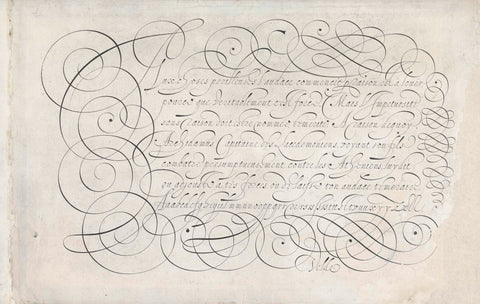 Aux choses perilleuses l'audace commencée par raison est a louer
pource que veritablement est force. Mais l'impetuosité
sans raison doit estre nommée temerité. A raison dequoy
Archidamus Capitaine des Lacedemoniens, voyant son filz
combatre presumptueusement contre les Atheniens luy dit
ou adjouste a tes forces ou delaisse ton audace temeraire
Velde